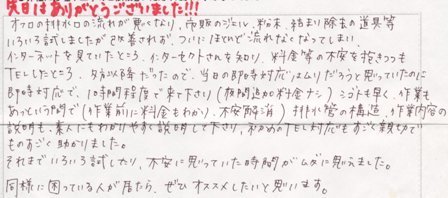 先日はありがとうございました!!!
オフロの排水口の流れが悪くなり、市販のジェル、粉末、詰まり除去の道具等
いろいろ試しましたが改善されず、ついにほとんど流れなくなってしまい
インターネットを見ていたところ、インセクトさんを知り、料金等の不安を抱きつつも
TELしたところ、夕方以降だったので、当日の即時対応はムリだろうと思っていたのに
即時対応で、1時間程度で来て下さり(夜間追加料金ナシ)シゴトも早く、作業も
あっという間で(作業前に料金もわかり、不安解消)排水管の構造、作業内容の
説明も、素人にもわかりやすく説明して下さり、初めのTEL対応もすごく親切で
ものすごく助かりました。
それまでいろいろ試したり、不安に思っていた時間がムダに思えました。
同様に困っている人が居たら、ぜひオススメしたいと思います。